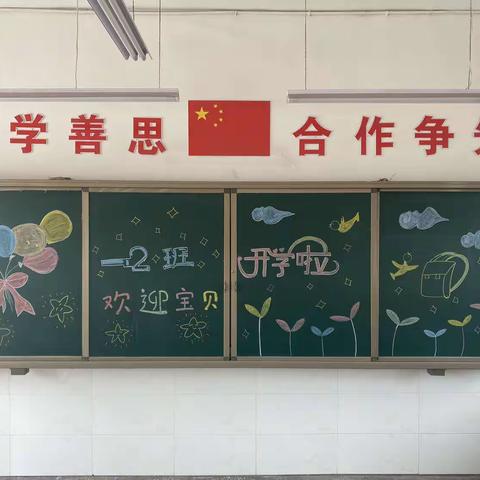 学善思
合作争
一2班 开学啦
欢迎宝贝